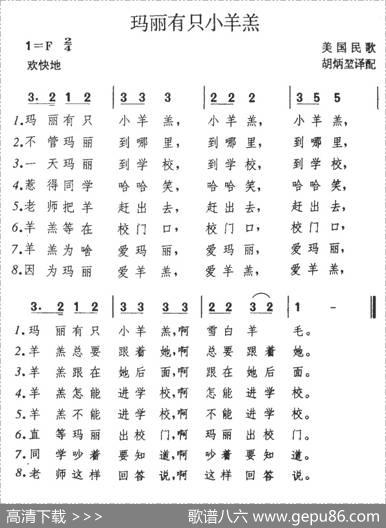 玛丽有只小羊羔
1=F 2/4
美国民歌
欢快地
胡炳堃译配
3. 2 1 2 | 3 3 3 | 2 2 2 | 3 5 5
1.玛丽有只 小羊羔, 小羊羔, 小羊羔,
2.不管玛丽 到哪里, 到哪里, 到哪里,
3.一天玛丽 到学校, 到学校, 到学校,
4.惹得同学 哈哈笑, 哈哈笑, 哈哈笑,
5.老师把羊 赶出去, 赶出去, 赶出去,
6.羊羔等在 校门口, 校门口, 校门口,
7.羊羔为啥 爱玛丽, 爱玛丽, 爱玛丽,
8.因为玛丽 爱羊羔, 爱羊羔, 爱羊羔,
3. 2 1 2 | 3 3 3 3 | 2 2 3 2 | 1 - ‖
1.玛丽有只 小羊羔,啊 雪白羊 毛。
2.羊羔总要 跟着她,啊 总要跟着 她。
3.羊羔跟在 她后面,啊 跟在她后 面。
4.羊羔怎能 进学校,啊 怎能进学 校。
5.羊羔不能 进学校,啊 不能进学 校。
6.直等玛丽 出校门,啊 玛丽出校 门。
7.同学吵着 要知道,啊 吵着要知 道。
8.老师这样 回答说,啊 这样回答 说。
高清下载 >>>
歌谱八六 www.gepu86.com